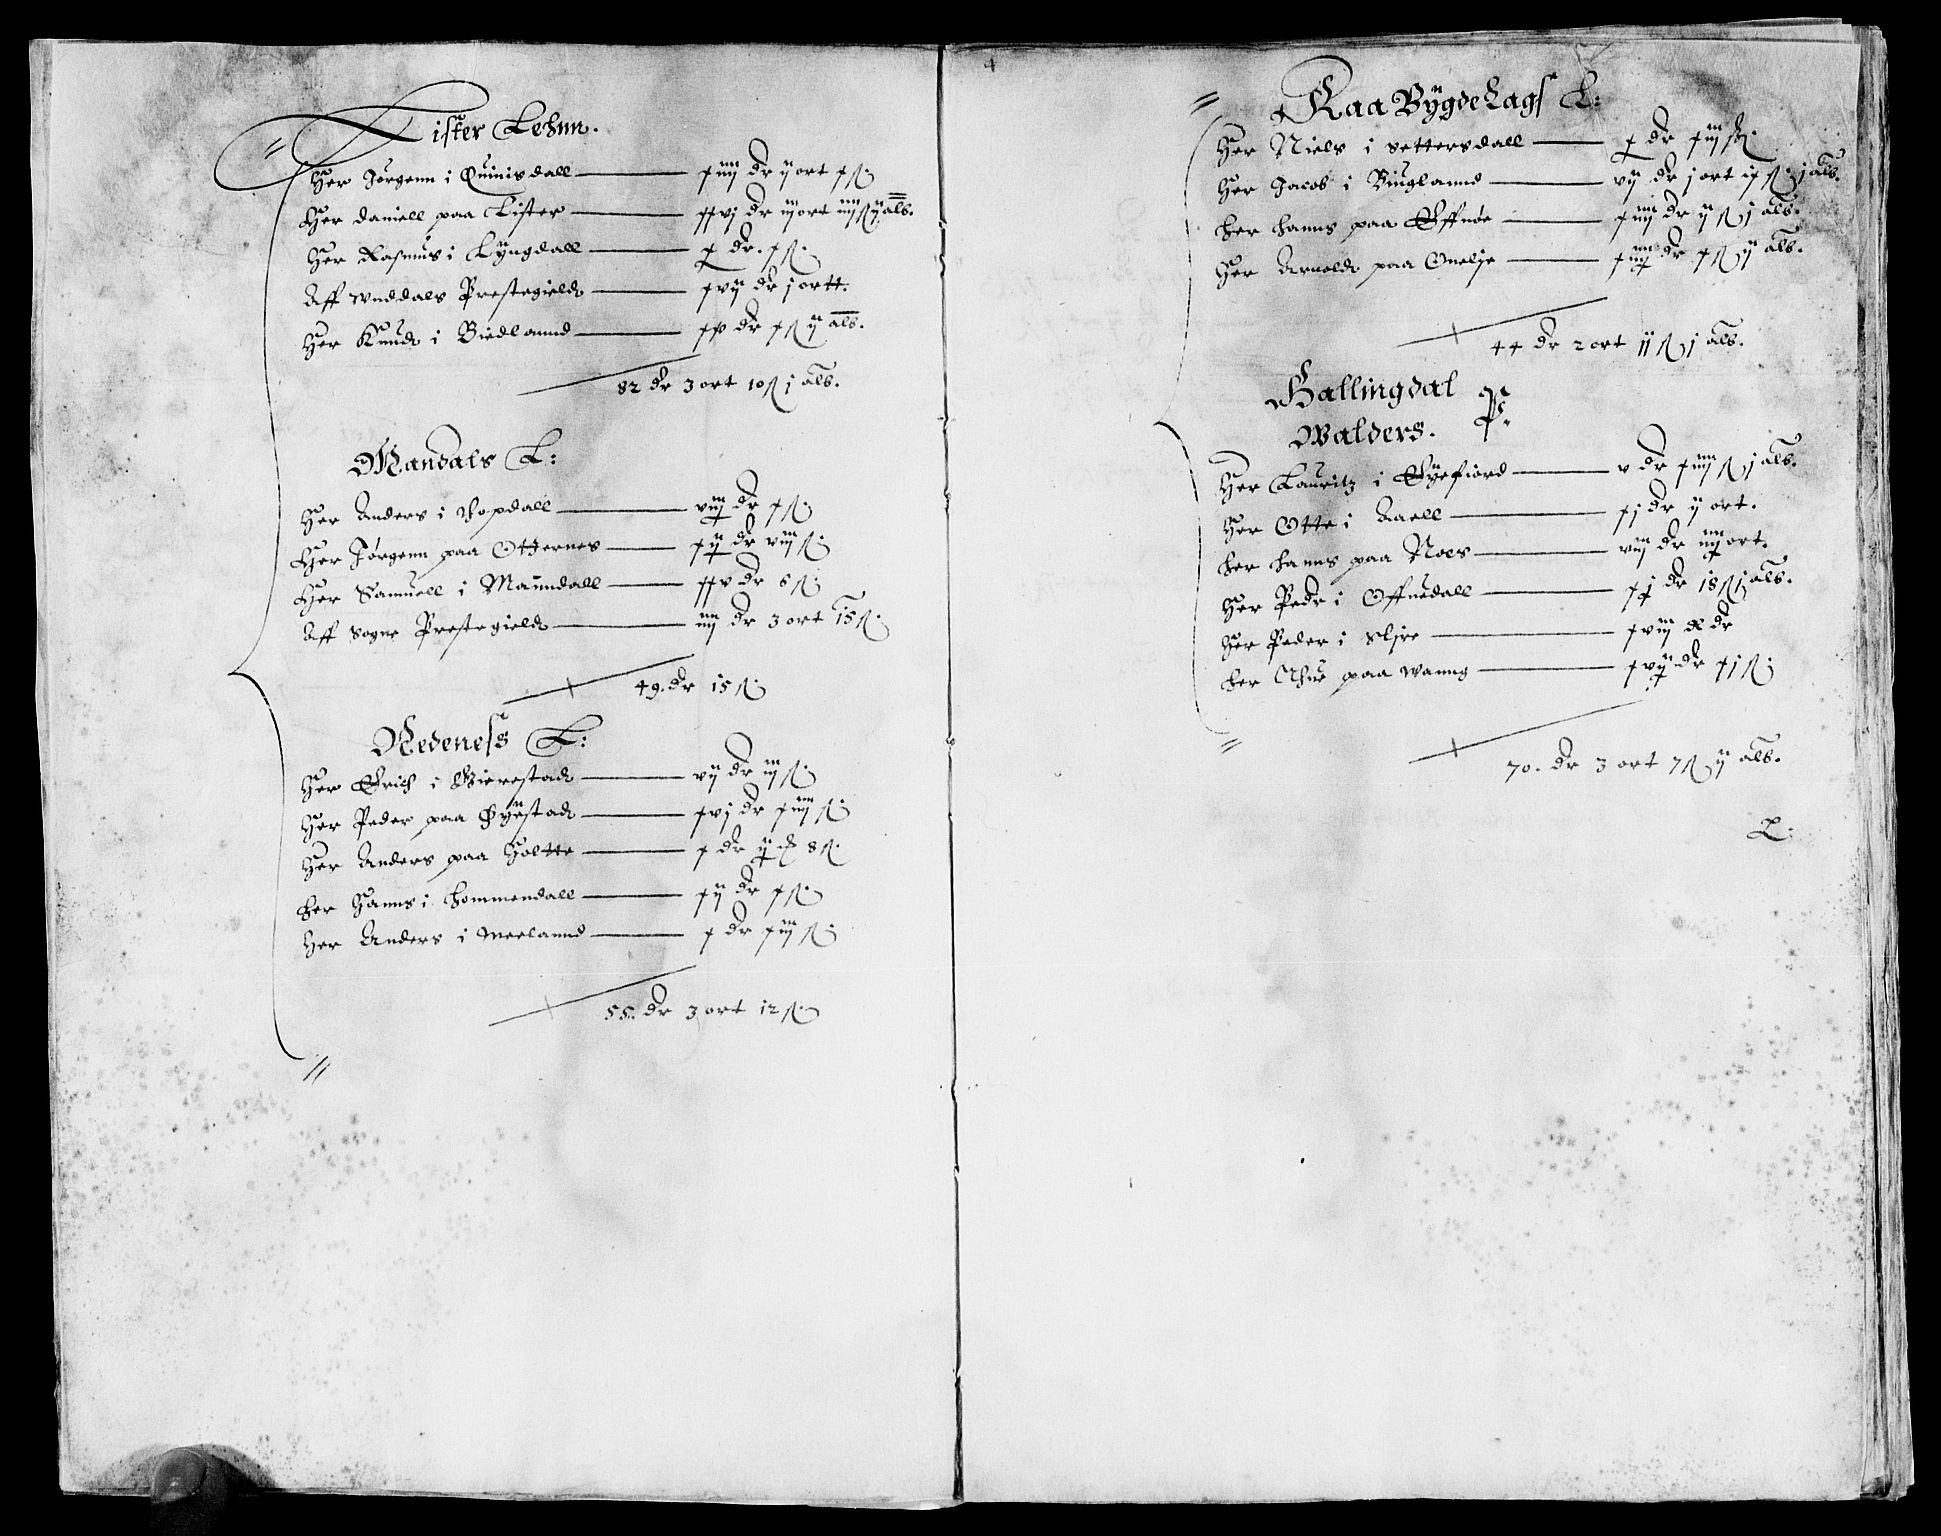 Lister Lehnn.
Her Jørgenn i Quinisdall — xiiij dr ij ort x ß
Her Daniell paa Lister — xxvj dr iij ort iiij ß ij alb.
Her Rasmus i Lyngdall — x dr. x ß
Aff Unddals Prestegield — xvij dr j ortt.
Her Knud i Biedlannd — xv dr x ß ij alb.
82 dr 3 ort 10 ß j alb.
Mandals L:
Her Anders i Hopdall — viij dr x ß
Her Jørgenn paa Otternes — xij dr viij ß
Her Samuell i Manndall — xxv dr 6 ß
Aff Sogne Prestegield — iiij dr 3 ort 15 ß
49. dr 15 ß
Nedeness L:
Her Erich i Gierestad — vij dr iij ß
Her Peder paa Øyestad — xvj dr xiiij ß
Her Anders paa Holtte — x dr ij 8 ß.
Her Hanns i Hommendall — xij dr x ß
Her Anders i Meelannd — x dr xiij ß
55. dr 3 ort 12 ß
4
Raa Bygde Lags L:
Her Niels i Settersdall — x dr xiij ß
Her Jacob i Biuglannd — vij dr j ort ix ß j alb.
Her Hanns paa Effnøe — xiiij dr ij ß j alb.
Her Arnold paa Omelse — xiiij dr x ß ij alb.
44 dr 2 ort 11 ß j alb.
Hallingdal
Walders. P.
Her Lauritz i Eyefiord — v dr xiiij ß j alb.
Her Otte i Aaell — xj dr ij ort.
Her Hanns paa Noes — viij dr iiij ort.
Her Peder i Offnedall — xj dr 18 ß j alb.
Her Peder i Slire — xviij dr
Her Thue paa Wanng — xvij dr xj ß
70. dr 3 ort 7 ß ij alb.
L: